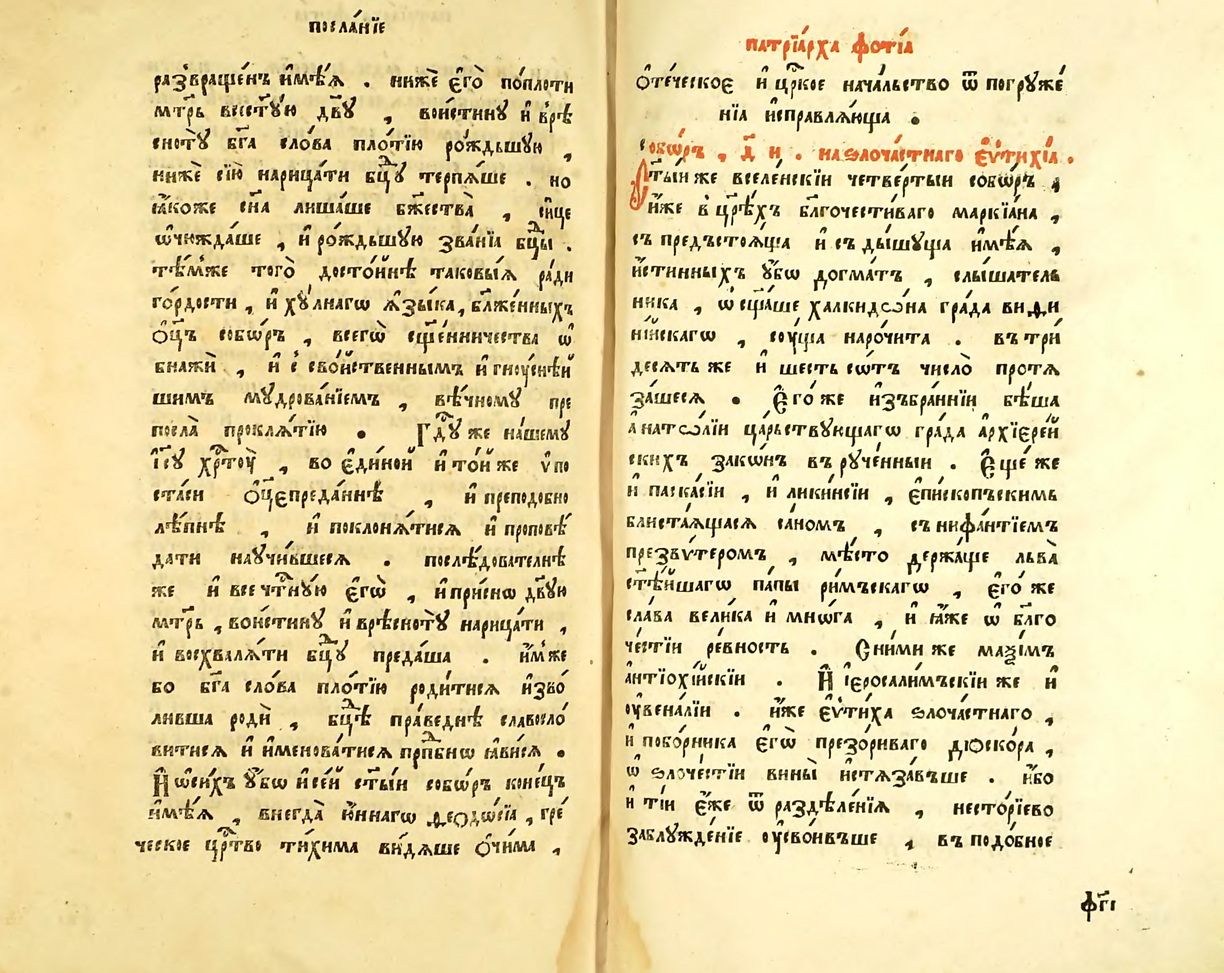 посла́нїе
разъвраще́нъ и҆мѣ́ѧ . нижѐ є҆го̀ по́плоти
мт҃рь всест҃ꙋю дв҃ꙋ , вои́стинꙋ и҆ врѣ
снотꙋ̀ бг҃а сло́ва пло́тїю ро́ждьшꙋю ,
нижѐ сїю̀ нарица́ти бц҃ꙋ терпѧ́ше . но
ꙗ҆́коже сн҃а лиша́ше бж҃ества̀ , си́це
ѿчюжда́ше , и҆ ро́ждьшꙋю зва́нїа бц҃ы .
тѣ́мже того̀ досто́йнѣ таковы́ѧ ра́ди
го́рдости , и҆ хꙋ́лнагѡ ѧ҆зы́ка , бл҃же́нныхъ
ѻ҆ц҃ъ собѡ́ръ , всегѡ̀ сщ҃е́нничества ѡ҆
бнажѝ , и҆ с̾ сво́йственнымъ и҆ гноу́снѣй
шимъ мꙋдрова́нїемъ , вѣ́чномꙋ пре
посла̀ проклѧ́тїю . Гд҃ꙋ же на́шемꙋ
І҆с҃ꙋ хр҃тоу̀ , во є҆ди́ной и҆ то́й же ѵ҆по
ста́си ѻ҆ц҃епреда́ннѣ , и҆ преподобно
лѣ́пнѣ , и҆ поклонѧ́тисѧ и҆ проповѣ́
дати научи́вшеся . послѣ́дователнѣ
же и҆ всечт҃нꙋ́ю є҆гѡ̀ , и҆ при́снѡ дв҃ꙋю
мт҃рь , вои́стинꙋ и҆ врѣснотꙋ̀ нарица́ти ,
и҆ восхвалѧ́ти бц҃ꙋ преда́ша . и҆́мже
бо бг҃а сло́ва пло́тїю роди́тисѧ и҆зво́
ливша родѝ , бц҃ѣ пра́веднѣ славосло́
витисѧ и҆ и҆менова́тисѧ прп҃бнѡ ꙗ҆ви́сѧ .
И҆ ѡ҆си́хъ ᲂу҆́бѡ и҆ се́й ст҃ы́и собѡ́ръ коне́цъ
и҆мѣ́ѧ , внегда̀ ю҆́ннагѡ ѳеѻдѡ́сїа , гре́
ческое цр҃тво ти́хима ви́дѧше ѻ҆чи́ма ,
патрїа́рха фо́тїа
ѻ҆те́ческоє и҆ цр҃кое нача́льство ѿ погрꙋже́
нїа и҆справлѧ́юща .
собѡ́ръ , д҃ и . на ѕлоча́стнаго є҆ѵти́хїа .
С҃тыи же вселе́нскїи четве́ртыи собѡ́ръ ,
и҆́же в̾ цр҃ѣ́хъ бл҃гочести́ваго маркїа́на ,
съ предъстоѧ́ща и҆ съ ды́шꙋща и҆мѣ́ѧ ,
и҆́стинныхъ ᲂу҆́бѡ догма́тъ , слы́шатель
ника , ѡ҆сщ҃а́ше халкидѡ́на гра́да виѳи
ні́искагѡ , соу́ща наро́чита . въ три́
десѧть же и҆ ше́сть сѡ́тъ число̀ протѧ
за́шесѧ . Є҆го́ же и҆збра́ннїи бѣ́ша
а҆натѡ́лїи ца́рьствꙋющагѡ гра́да а҆рхїере́й
скихъ зако́нъ въ рꙋче́нныи . Є҆ще́ же
и҆ паска́сїи , и҆ лики́нсїи , є҆пи́скопъскимь
блиста́ѧщаѧсѧ са́номъ , съ нифа́нтїемъ
презвѵ́теромъ , мѣ́сто держа́ще льва̀
ст҃ѣ́йшагѡ па́пы ри́мъскагѡ , є҆го́ же
сла́ва вели́ка и҆ мнѡ́га , и҆ ꙗ҆́же ѡ҆ бл҃го
че́стїи ре́вность . Сни́ми же маѯі́мъ
а҆нтїохі́йскїи . И҆ і҆еросали́мъскїи же и҆
оу҆вена́лїи . и҆́же є҆ѵти́ха ѕлоча́стнаго ,
и҆ побо́рника є҆гѡ̀ презо́риваго дїѻско́ра ,
ѡ҆ ѕлоче́стїи вины̀ и҆стѧза́въше . и҆́бо
и҆ ті́и є҆́же ѿ раздѣле́нїѧ , несто́рїево
заблꙋжде́нїе оу҆сво́ивъше , въ подо́бное
фг҃і